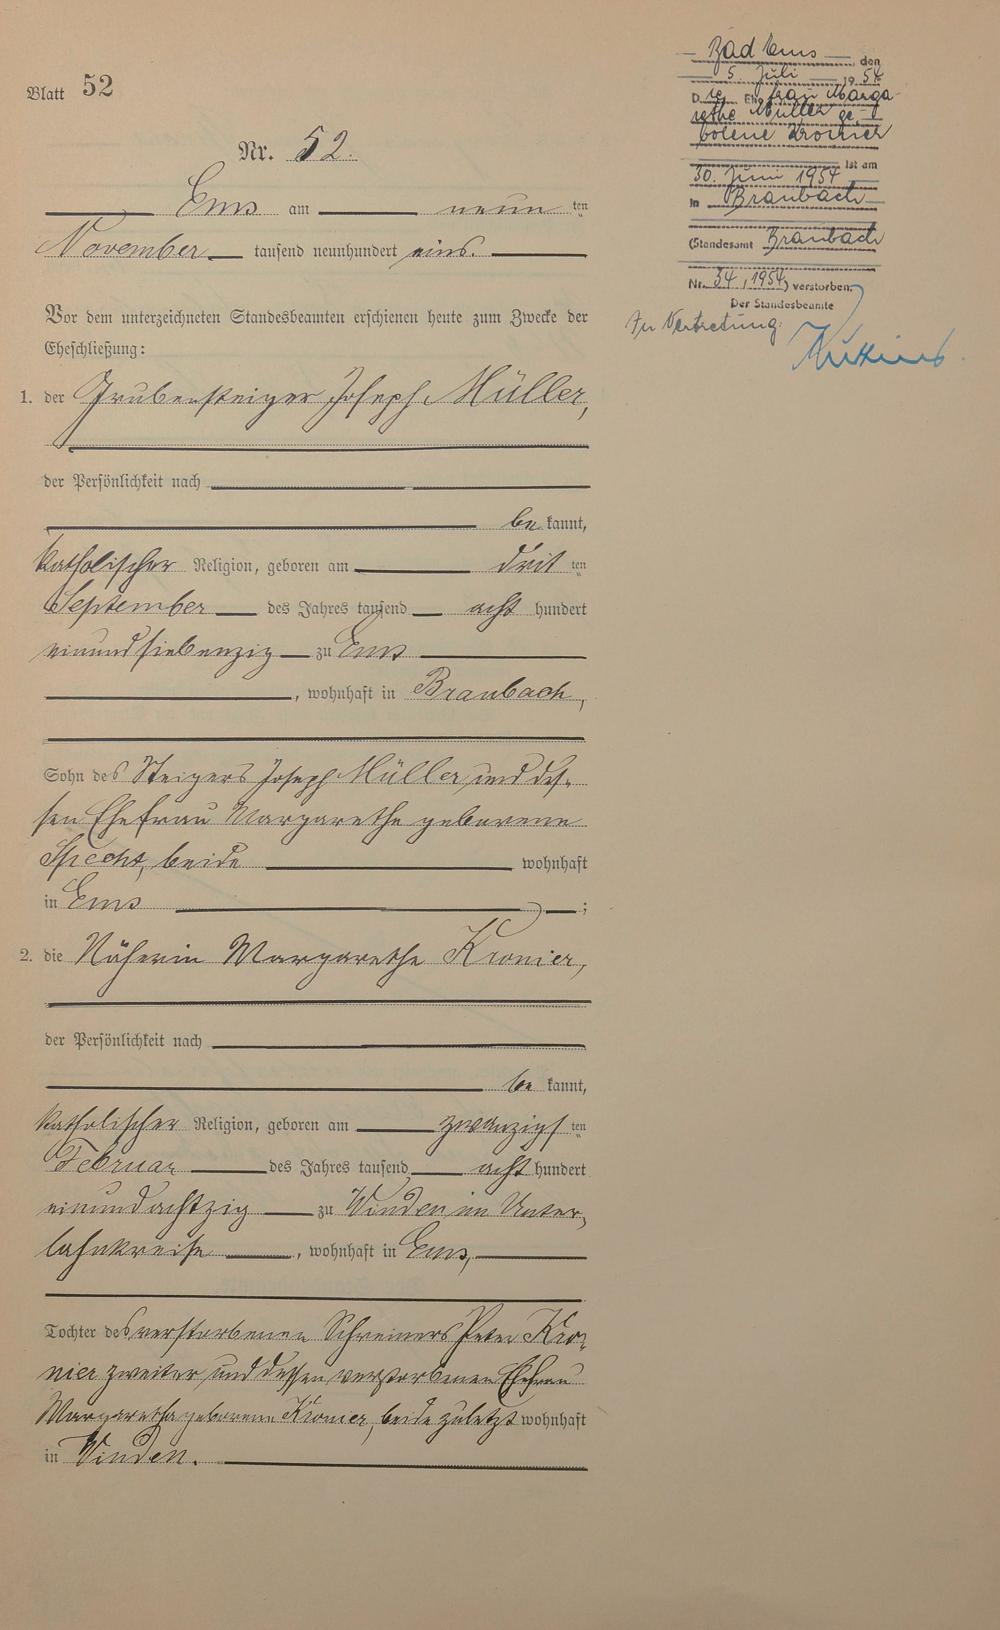 Blatt 52
Nr. 52.
Ems am neunten
November tausend neunhundert eins.
Vor dem unterzeichneten Standesbeamten erschienen heute zum Zwecke der
Eheschließung:
1. der Grubensteiger Joseph Müller,
der Persönlichkeit nach
be kannt,
katholischer Religion, geboren am dritten
September des Jahres tausend acht hundert
einundsiebenzig zu Ems
, wohnhaft in Braubach,
Sohn des Steigers Joseph Müller und des-
sen Ehefrau Margarethe geborene
Specht, beide wohnhaft
in Ems ;
2. die Näherin Margarethe Kronier,
der Persönlichkeit nach
be kannt,
katholischer Religion, geboren am zwanzigsten
Februar des Jahres tausend acht hundert
einundachtzig zu Winden im Unter-
lahnkreise , wohnhaft in Ems,
Tochter des verstorbenen Schreiners Peter Kro-
nier zweiter und dessen verstorbenen Ehefrau
Margaretha geborene Kronier, beide zuletzt wohnhaft
in Winden.
Bad Ems, den
5. Juli 1954
Die Ehefrau Marga-
rethe Müller ge-
borene Kronier
ist am
30. Juni 1954
in Braubach
(Standesamt Braubach
Nr. 34, 1954) verstorben.
Der Standesbeamte
In Vertretung: